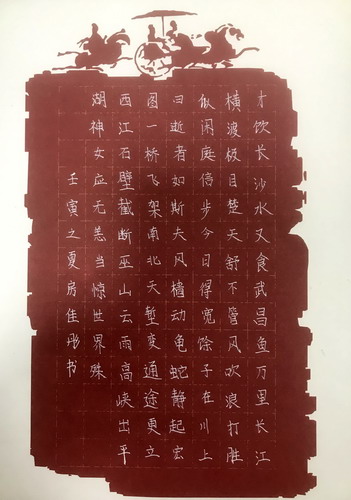 才饮长沙水又食武昌鱼万里长江
横渡极目楚天舒不管风吹浪打胜
似闲庭信步今日得宽馀子在川上
曰逝者如斯夫风樯动龟蛇静起宏
图一桥飞架南北天堑变通途更立
西江石壁截断巫山云雨高峡出平
湖神女应无恙当惊世界殊
壬寅之夏房佳彤书